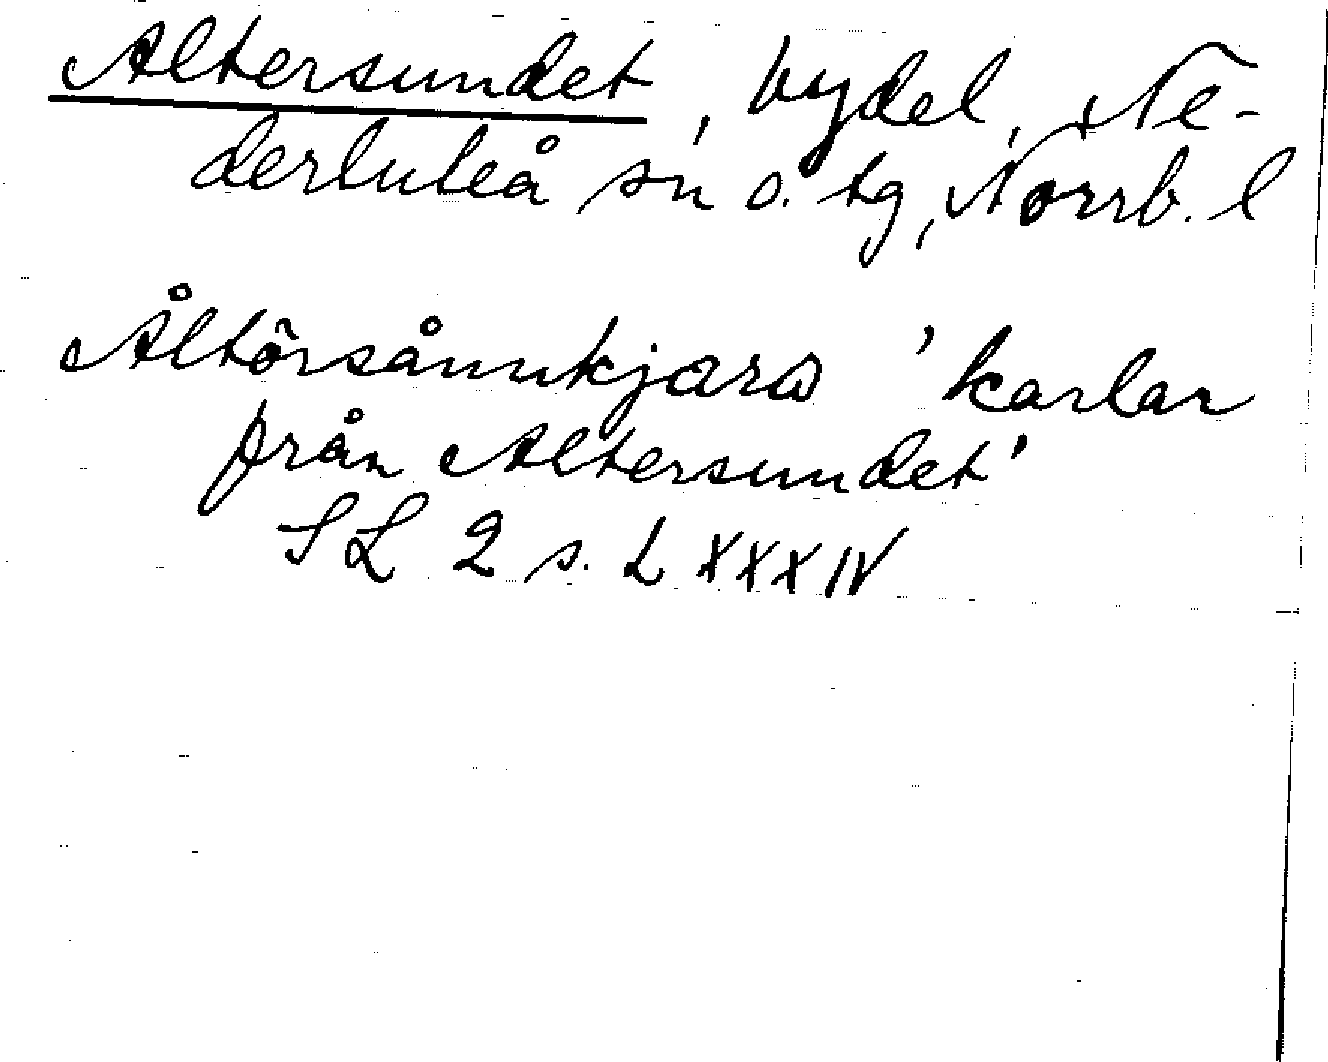 Altersundet, bydel, Ne-
derluleå sn o. tg, Norrb. l
Åltörsånnkjara 'karlar
från Altersundet'
SL 2 s. LXXXIV